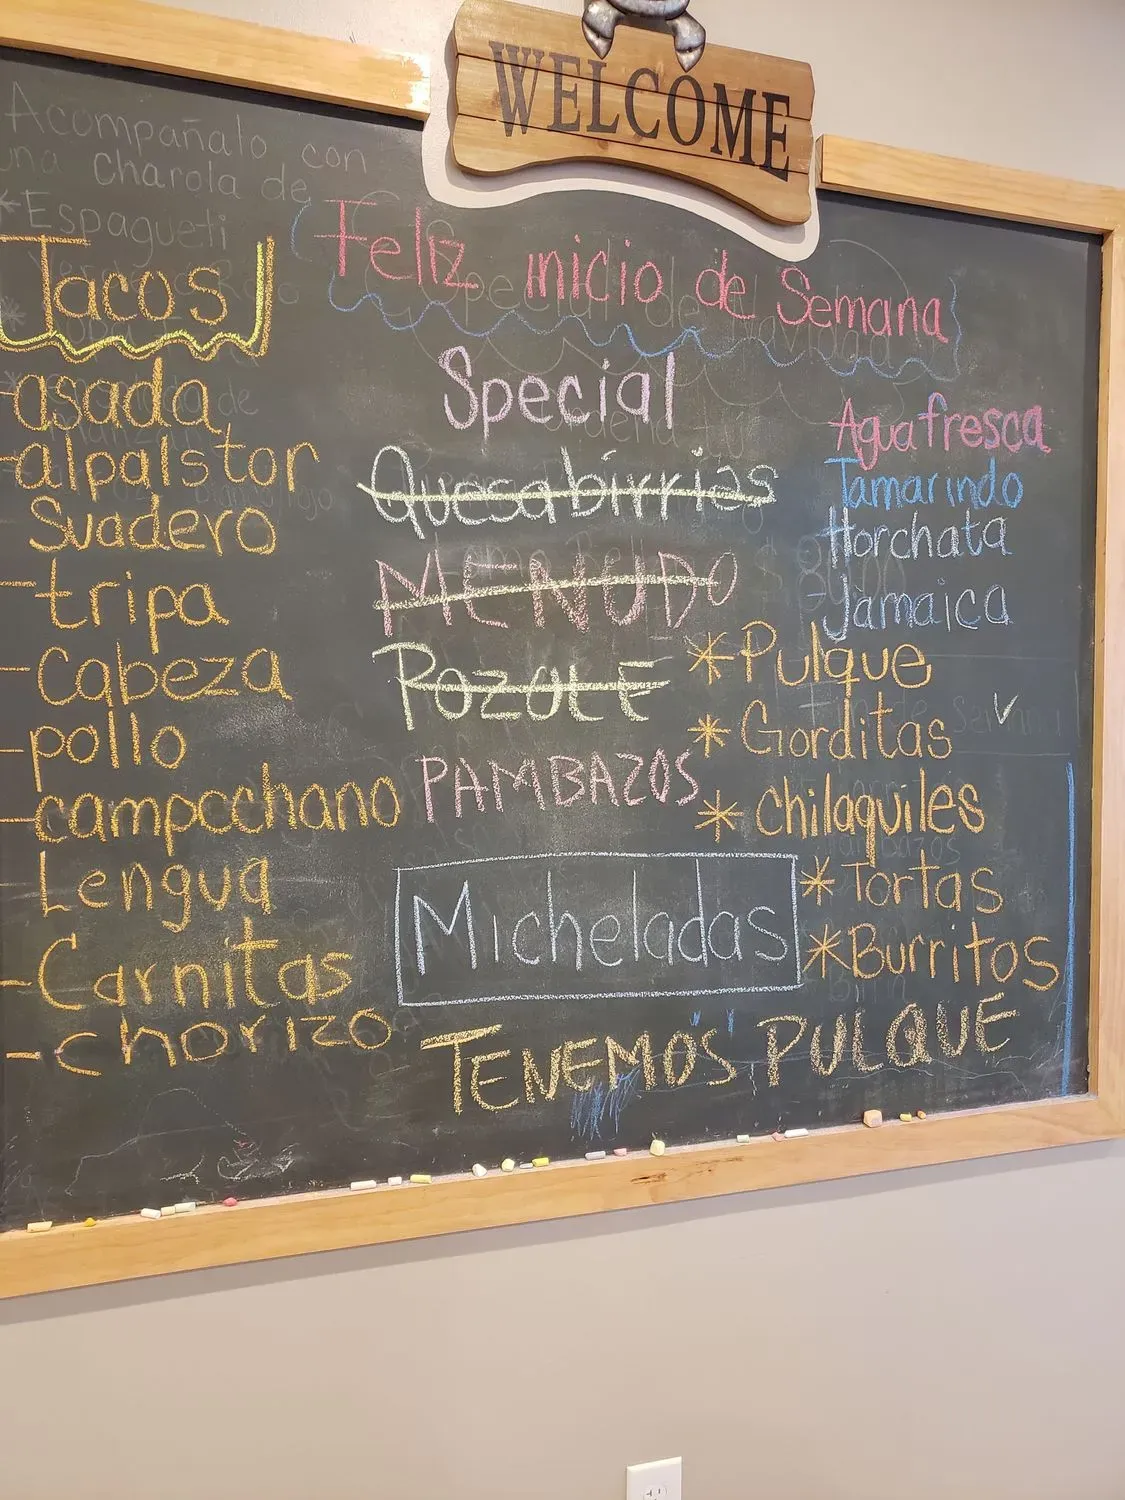 WELCOME
Acompañalo con
una charola de
*Espagueti
Feliz inicio de Semana
Tacos
-asada
-alpalstor
Suadero
-tripa
-Cabeza
-pollo
-campcchano
Lengua
-Carnitas
-chorizo
Special
Quesabirrias
MENUDO
POZOLE
PAMBAZOS
Micheladas
TENEMOS PULQUE
Agua fresca
Tamarindo
Horchata
-Jamaica
*Pulque
*Gorditas
*chilaquiles
*Tortas
*Burritos